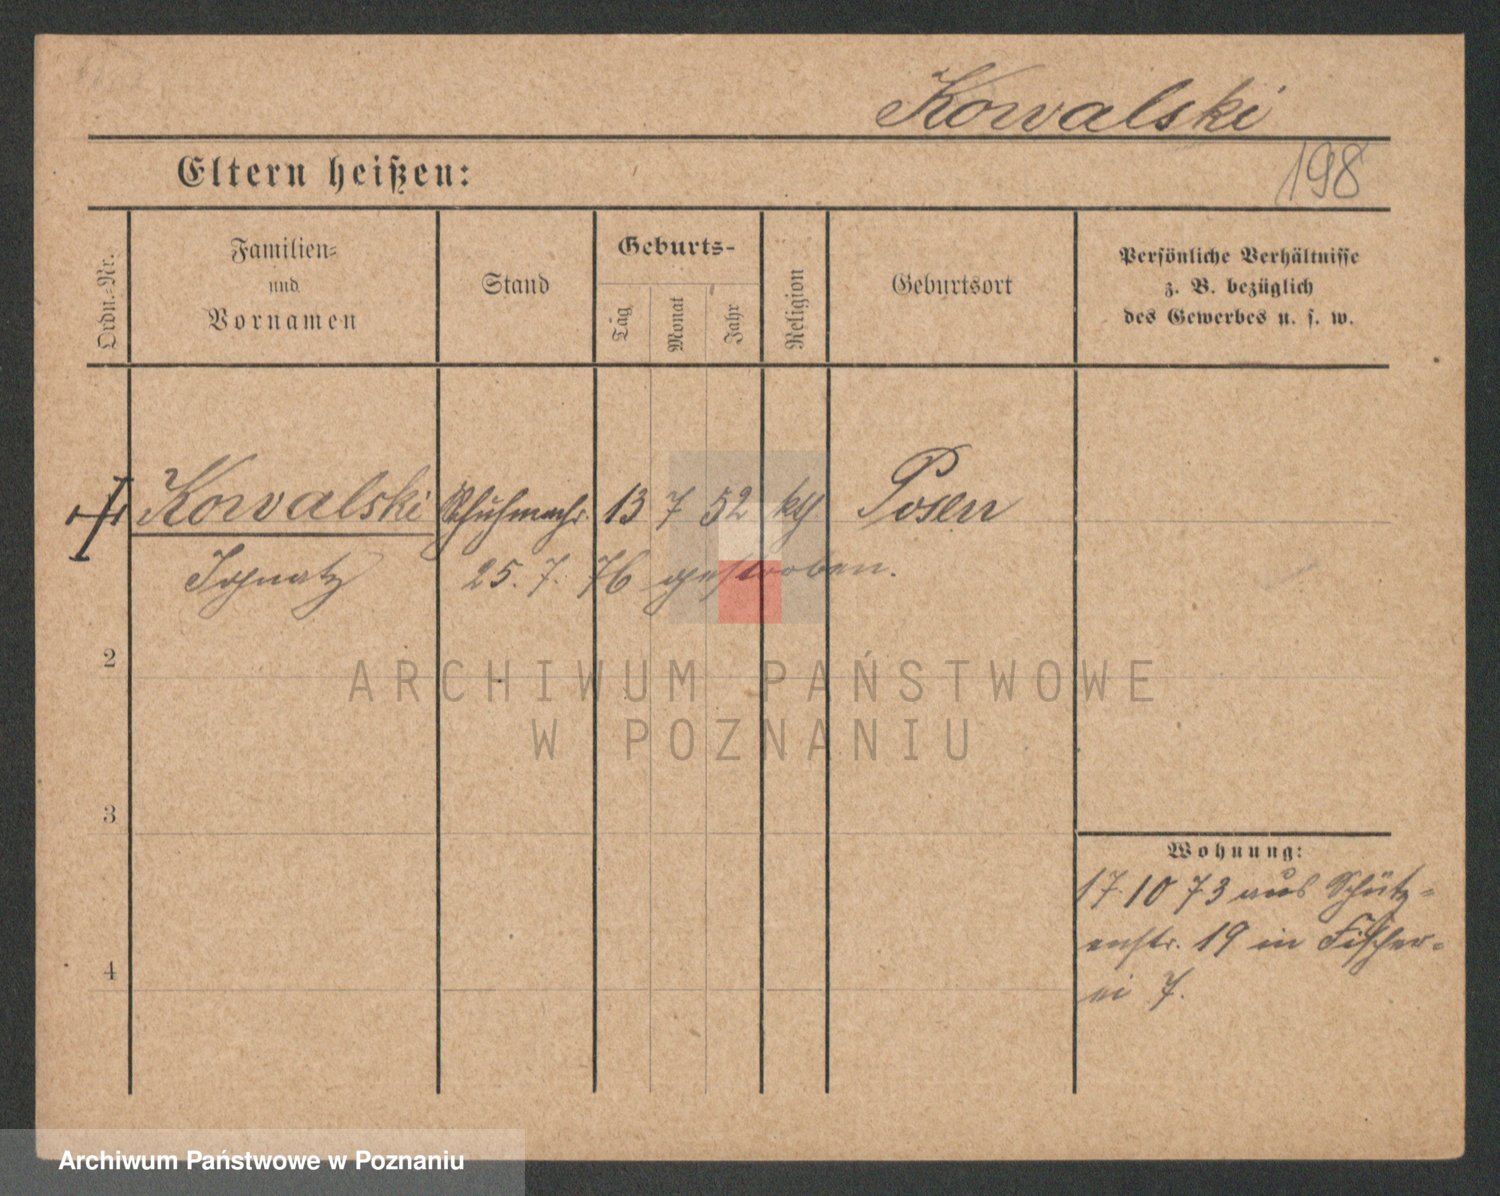 Kowalski
Eltern heißen:
198
Ordn.-Nr.
Familien-
und
Vornamen
Stand
Geburts-
Tag
Monat
Jahr
Religion
Geburtsort
Persönliche Verhältnisse
z. B. bezüglich
des Gewerbes u. s. w.
Kowalski Schuhmachr. 13 7 52 kth Posen
Ignatz 25. 7. 76 gestorben.
2
3
4
Wohnung:
17 10 73 aus Schütz-
enstr. 19 in Fischer-
ei 7.
ARCHIWUM PAŃSTWOWE
W POZNANIU
Archiwum Państwowe w Poznaniu